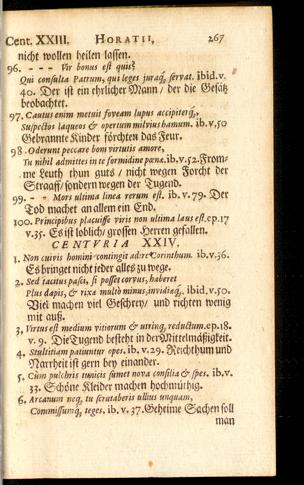 Cent. XXIII. HORATII, 267
nicht wollen heilen lassen.
96. - - - Vir bonus est quis?
Qui consulta Patrum, qui leges juraq́, servat. ibid. v.
40. Der ist ein ehrlicher Mann / der die Gesätz
beobachtet.
97. Cautus enim metuit foveam lupus accipiterq́,
Suspectos laqueos & opertum milvius hamum. ib. v. 50
Gebrannte Kinder förchten das Feur.
98. Oderunt peccare boni virtutis amore,
Tu nihil admittes in te formidine pœnæ. ib. v. 52. From-
me Leuth thun guts / nicht wegen Forcht der
Straaff / sondern wegen der Tugend.
99. - - Mors ultima linea rerum est. ib. v. 79. Der
Tod machet an allem ein End.
100. Principibus placuisse viris non ultima laus est. ep. 17
v. 35. Es ist loblich / grossen Herren gefallen.
CENTURIA XXIV.
1. Non cuivis homini contingit adire Corinthum. ib. v. 36.
Es bringet nicht jeder alles zu wege.
2. Sed tacitus pasci, si posset corvus, haberet
Plus dapis, & rixæ multò minus, invidiæq́, ibid. v. 50.
Viel machen viel Geschrey / und richten wenig
mit auß.
3, Virtus est medium vitiorum & utrinq, reductum. ep. 18.
v. 9. Die Tugend besteht in der Mittelmäßigkeit.
4. Stultitiam patiuntur opes. ib. v. 29. Reichthum und
Narrheit ist gern bey einander.
5. Cum pulchris tunicis sumet nova consilia & spes. ib. v.
33. Schöne Kleider machen hochmüthig.
6. Arcanum neq, tu scrutaberis ullius unquam,
Commissumq́, teges. ib. v. 37. Geheime Sachen soll
man